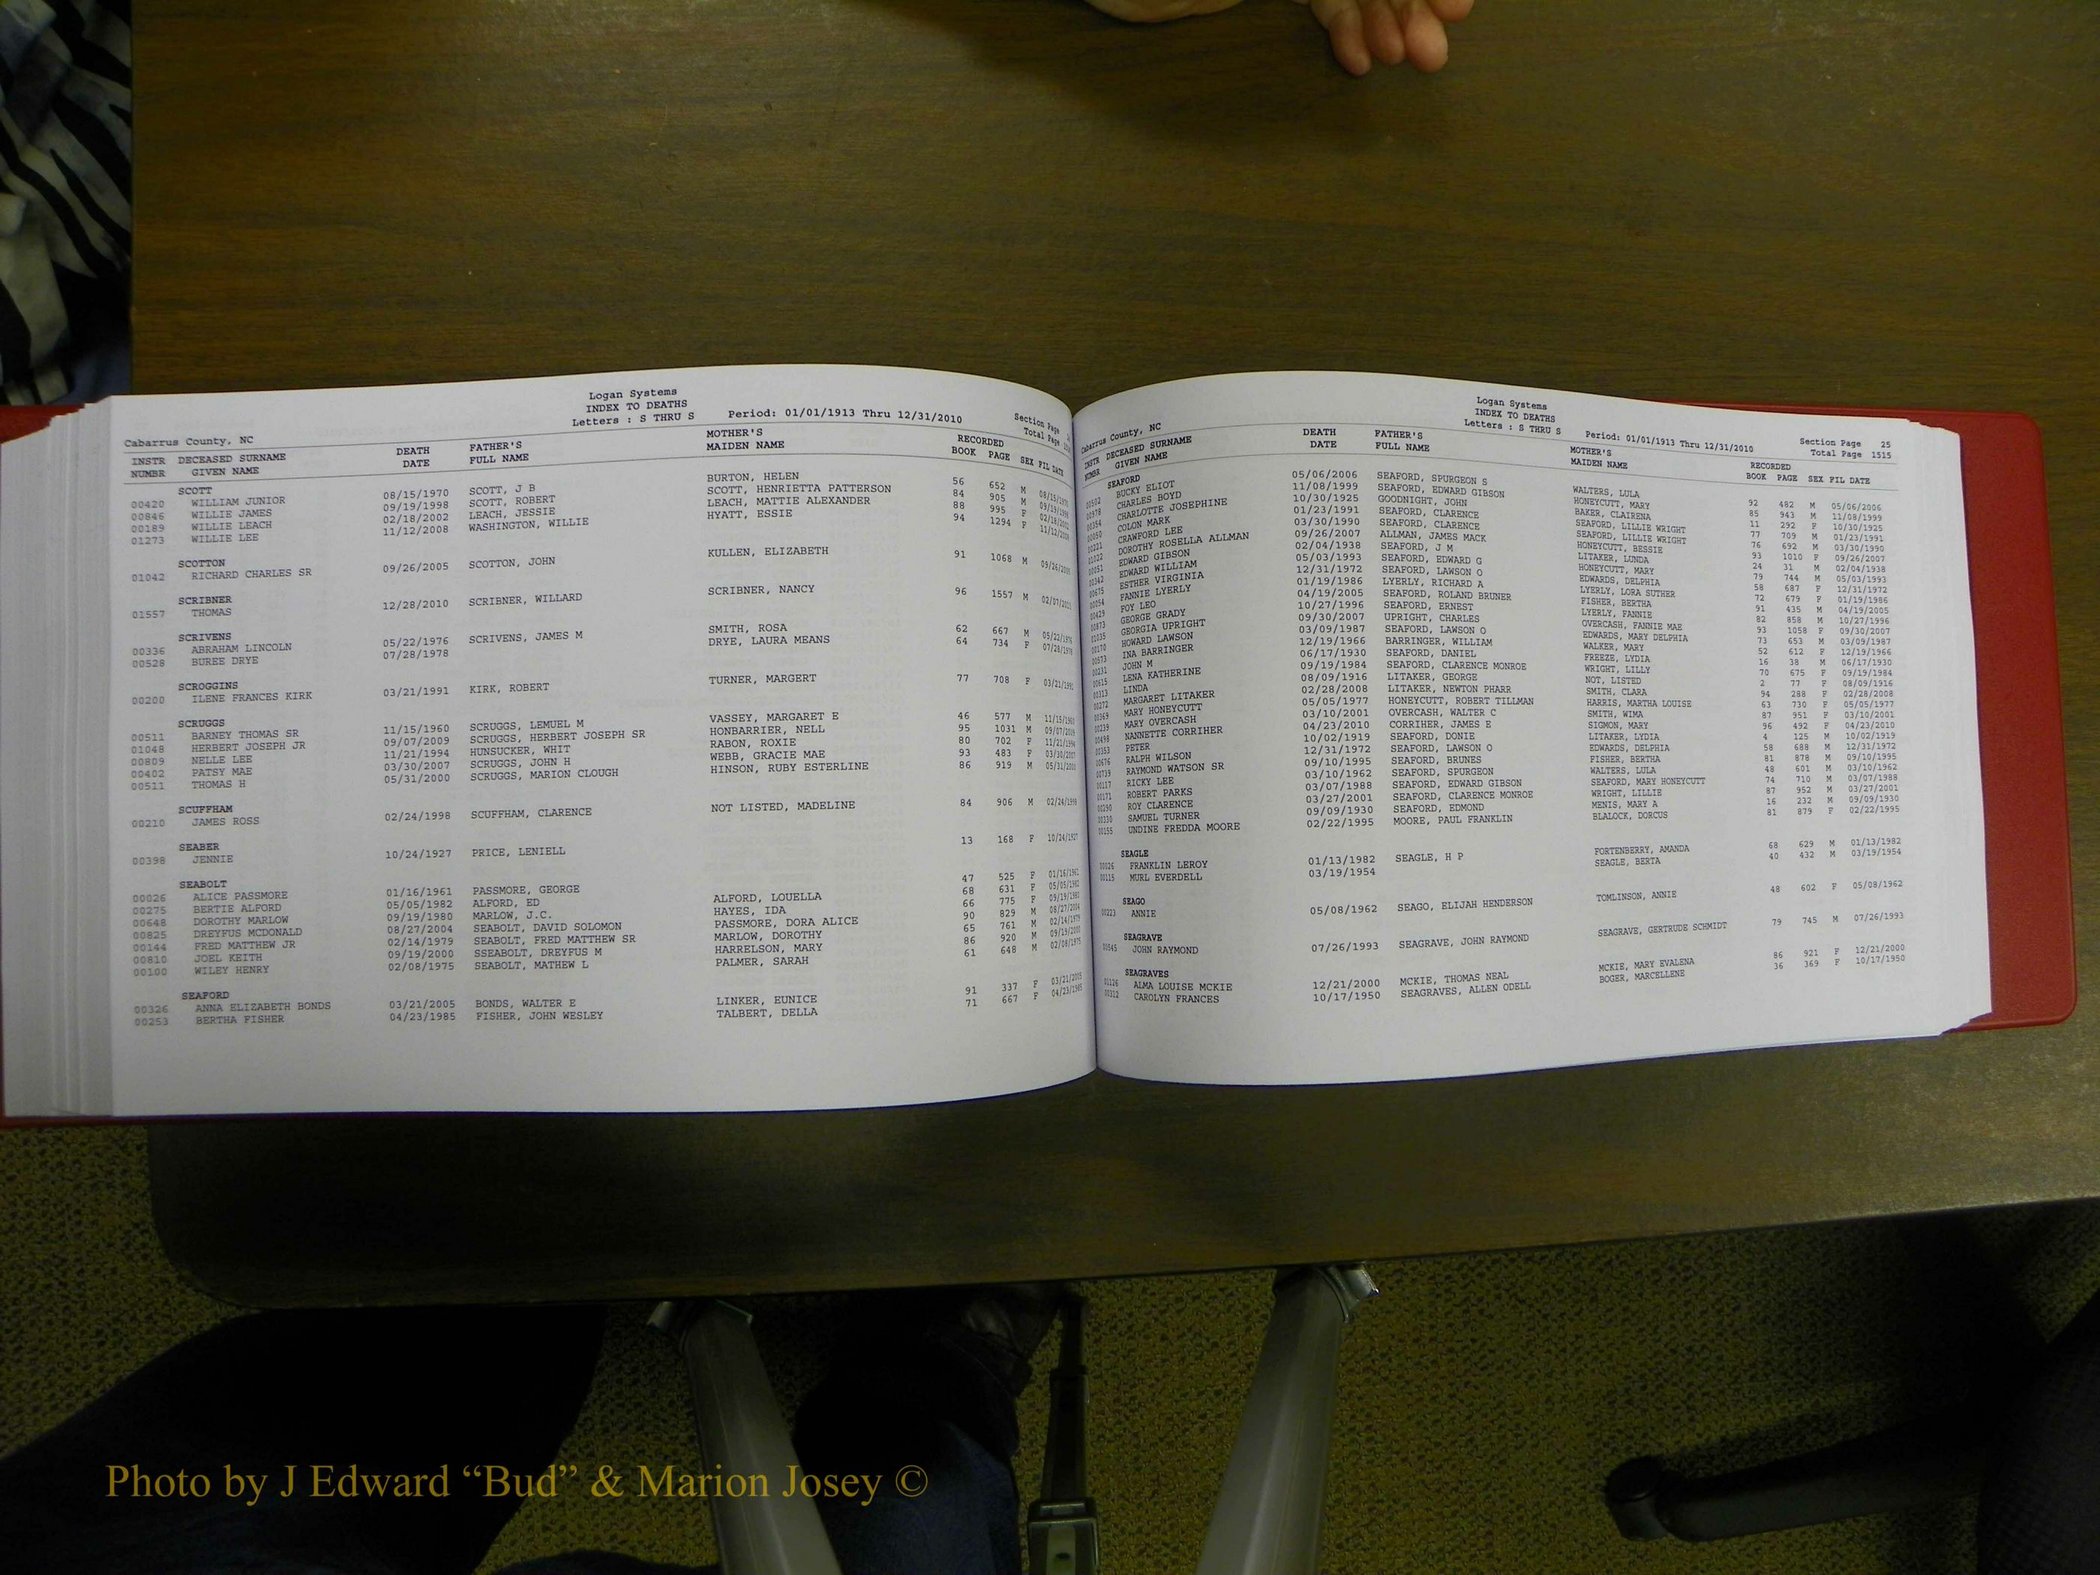 Logan Systems
INDEX TO DEATHS
Cabarrus County, NC Letters : S THRU S Period: 01/01/1913 Thru 12/31/2010 Section Page
Total Page
INSTR DECEASED SURNAME DEATH FATHER'S MOTHER'S RECORDED
NUMBR GIVEN NAME DATE FULL NAME MAIDEN NAME BOOK PAGE SEX FIL DATE
SCOTT
00420 WILLIAM JUNIOR 08/15/1970 SCOTT, J B BURTON, HELEN 56 652 M 08/15/1970
00846 WILLIE JAMES 09/19/1998 SCOTT, ROBERT SCOTT, HENRIETTA PATTERSON 84 905 M 09/19/1998
00189 WILLIE LEACH 02/18/2002 LEACH, JESSIE LEACH, MATTIE ALEXANDER 88 995 F 02/18/2002
01273 WILLIE LEE 11/12/2008 WASHINGTON, WILLIE HYATT, ESSIE 94 1294 F 11/12/2008
SCOTTON
01042 RICHARD CHARLES SR 09/26/2005 SCOTTON, JOHN KULLEN, ELIZABETH 91 1068 M 09/26/2005
SCRIBNER
01557 THOMAS 12/28/2010 SCRIBNER, WILLARD SCRIBNER, NANCY 96 1557 M 02/07/2011
SCRIVENS
00336 ABRAHAM LINCOLN 05/22/1976 SCRIVENS, JAMES M SMITH, ROSA 62 667 M 05/22/1976
00528 BUREE DRYE 07/28/1978 DRYE, LAURA MEANS 64 734 F 07/28/1978
SCROGGINS
00200 ILENE FRANCES KIRK 03/21/1991 KIRK, ROBERT TURNER, MARGERT 77 708 F 03/21/1991
SCRUGGS
00511 BARNEY THOMAS SR 11/15/1960 SCRUGGS, LEMUEL M VASSEY, MARGARET E 46 577 M 11/15/1960
01048 HERBERT JOSEPH JR 09/07/2009 SCRUGGS, HERBERT JOSEPH SR HONBARRIER, NELL 95 1031 M 09/07/2009
00809 NELLE LEE 11/21/1994 HUNSUCKER, WHIT RABON, ROXIE 80 702 F 11/21/1994
00402 PATSY MAE 03/30/2007 SCRUGGS, JOHN H WEBB, GRACIE MAE 93 483 F 03/30/2007
00511 THOMAS H 05/31/2000 SCRUGGS, MARION CLOUGH HINSON, RUBY ESTERLINE 86 919 M 05/31/2000
SCUFFHAM
00210 JAMES ROSS 02/24/1998 SCUFFHAM, CLARENCE NOT LISTED, MADELINE 84 906 M 02/24/1998
SEABER
00398 JENNIE 10/24/1927 PRICE, LENIELL 13 168 F 10/24/1927
SEABOLT
00026 ALICE PASSMORE 01/16/1961 PASSMORE, GEORGE 47 525 F 01/16/1961
00275 BERTIE ALFORD 05/05/1982 ALFORD, ED ALFORD, LOUELLA 68 631 F 05/05/1982
00648 DOROTHY MARLOW 09/19/1980 MARLOW, J.C. HAYES, IDA 66 775 F 09/19/1980
00825 DREYFUS MCDONALD 08/27/2004 SEABOLT, DAVID SOLOMON PASSMORE, DORA ALICE 90 829 M 08/27/2004
00144 FRED MATTHEW JR 02/14/1979 SEABOLT, FRED MATTHEW SR MARLOW, DOROTHY 65 761 M 02/14/1979
00810 JOEL KEITH 09/19/2000 SSEABOLT, DREYFUS M HARRELSON, MARY 86 920 M 09/19/2000
00100 WILEY HENRY 02/08/1975 SEABOLT, MATHEW L PALMER, SARAH 61 648 M 02/08/1975
SEAFORD
00326 ANNA ELIZABETH BONDS 03/21/2005 BONDS, WALTER E LINKER, EUNICE 91 337 F 03/21/2005
00253 BERTHA FISHER 04/23/1985 FISHER, JOHN WESLEY TALBERT, DELLA 71 667 F 04/23/1985
Logan Systems
INDEX TO DEATHS
Cabarrus County, NC Letters : S THRU S Period: 01/01/1913 Thru 12/31/2010 Section Page 25
Total Page 1515
INSTR DECEASED SURNAME DEATH FATHER'S MOTHER'S RECORDED
NUMBR GIVEN NAME DATE FULL NAME MAIDEN NAME BOOK PAGE SEX FIL DATE
SEAFORD
00502 BUCKY ELIOT 05/06/2006 SEAFORD, SPURGEON S WALTERS, LULA 92 482 M 05/06/2006
00978 CHARLES BOYD 11/08/1999 SEAFORD, EDWARD GIBSON HONEYCUTT, MARY 85 943 M 11/08/1999
00354 CHARLOTTE JOSEPHINE 10/30/1925 GOODNIGHT, JOHN BAKER, CLAIRENA 11 292 F 10/30/1925
00050 COLON MARK 01/23/1991 SEAFORD, CLARENCE SEAFORD, LILLIE WRIGHT 77 709 M 01/23/1991
00221 CRAWFORD LEE 03/30/1990 SEAFORD, CLARENCE SEAFORD, LILLIE WRIGHT 76 692 M 03/30/1990
01022 DOROTHY ROSELLA ALLMAN 09/26/2007 ALLMAN, JAMES MACK HONEYCUTT, BESSIE 93 1010 F 09/26/2007
00051 EDWARD GIBSON 02/04/1938 SEAFORD, J M LITAKER, LUNDA 24 31 M 02/04/1938
00342 EDWARD WILLIAM 05/03/1993 SEAFORD, EDWARD G HONEYCUTT, MARY 79 744 M 05/03/1993
00675 ESTHER VIRGINIA 12/31/1972 SEAFORD, LAWSON O EDWARDS, DELPHIA 58 687 F 12/31/1972
00054 FANNIE LYERLY 01/19/1986 LYERLY, RICHARD A LYERLY, LORA SUTHER 72 679 F 01/19/1986
00429 FOY LEO 04/19/2005 SEAFORD, ROLAND BRUNER FISHER, BERTHA 91 435 M 04/19/2005
00873 GEORGE GRADY 10/27/1996 SEAFORD, ERNEST LYERLY, FANNIE 82 858 M 10/27/1996
01035 GEORGIA UPRIGHT 09/30/2007 UPRIGHT, CHARLES OVERCASH, FANNIE MAE 93 1058 F 09/30/2007
00170 HOWARD LAWSON 03/09/1987 SEAFORD, LAWSON O EDWARDS, MARY DELPHIA 73 653 M 03/09/1987
00573 INA BARRINGER 12/19/1966 BARRINGER, WILLIAM WALKER, MARY 52 612 F 12/19/1966
00231 JOHN M 06/17/1930 SEAFORD, DANIEL FREEZE, LYDIA 16 38 M 06/17/1930
00615 LENA KATHERINE 09/19/1984 SEAFORD, CLARENCE MONROE WRIGHT, LILLY 70 675 F 09/19/1984
00313 LINDA 08/09/1916 LITAKER, GEORGE NOT, LISTED 2 77 F 08/09/1916
00272 MARGARET LITAKER 02/28/2008 LITAKER, NEWTON PHARR SMITH, CLARA 94 288 F 02/28/2008
00369 MARY HONEYCUTT 05/05/1977 HONEYCUTT, ROBERT TILLMAN HARRIS, MARTHA LOUISE 63 730 F 05/05/1977
00239 MARY OVERCASH 03/10/2001 OVERCASH, WALTER C SMITH, WIMA 87 951 F 03/10/2001
00498 NANNETTE CORRIHER 04/23/2010 CORRIHER, JAMES E SIGMON, MARY 96 492 F 04/23/2010
00353 PETER 10/02/1919 SEAFORD, DONIE LITAKER, LYDIA 4 125 M 10/02/1919
00676 RALPH WILSON 12/31/1972 SEAFORD, LAWSON O EDWARDS, DELPHIA 58 688 M 12/31/1972
00739 RAYMOND WATSON SR 09/10/1995 SEAFORD, BRUNES FISHER, BERTHA 81 878 M 09/10/1995
00117 RICKY LEE 03/10/1962 SEAFORD, SPURGEON WALTERS, LULA 48 601 M 03/10/1962
00171 ROBERT PARKS 03/07/1988 SEAFORD, EDWARD GIBSON SEAFORD, MARY HONEYCUTT 74 710 M 03/07/1988
00290 ROY CLARENCE 03/27/2001 SEAFORD, CLARENCE MONROE WRIGHT, LILLIE 87 952 M 03/27/2001
00330 SAMUEL TURNER 09/09/1930 SEAFORD, EDMOND MENIS, MARY A 16 232 M 09/09/1930
00155 UNDINE FREDDA MOORE 02/22/1995 MOORE, PAUL FRANKLIN BLALOCK, DORCUS 81 879 F 02/22/1995
SEAGLE
00026 FRANKLIN LEROY 01/13/1982 SEAGLE, H P FORTENBERRY, AMANDA 68 629 M 01/13/1982
00115 MURL EVERDELL 03/19/1954 SEAGLE, BERTA 40 432 M 03/19/1954
SEAGO
00223 ANNIE 05/08/1962 SEAGO, ELIJAH HENDERSON TOMLINSON, ANNIE 48 602 F 05/08/1962
SEAGRAVE
00545 JOHN RAYMOND 07/26/1993 SEAGRAVE, JOHN RAYMOND SEAGRAVE, GERTRUDE SCHMIDT 79 745 M 07/26/1993
SEAGRAVES
01126 ALMA LOUISE MCKIE 12/21/2000 MCKIE, THOMAS NEAL MCKIE, MARY EVALENA 86 921 F 12/21/2000
00312 CAROLYN FRANCES 10/17/1950 SEAGRAVES, ALLEN ODELL BOGER, MARCELLENE 36 369 F 10/17/1950
Photo by J Edward “Bud” & Marion Josey ©